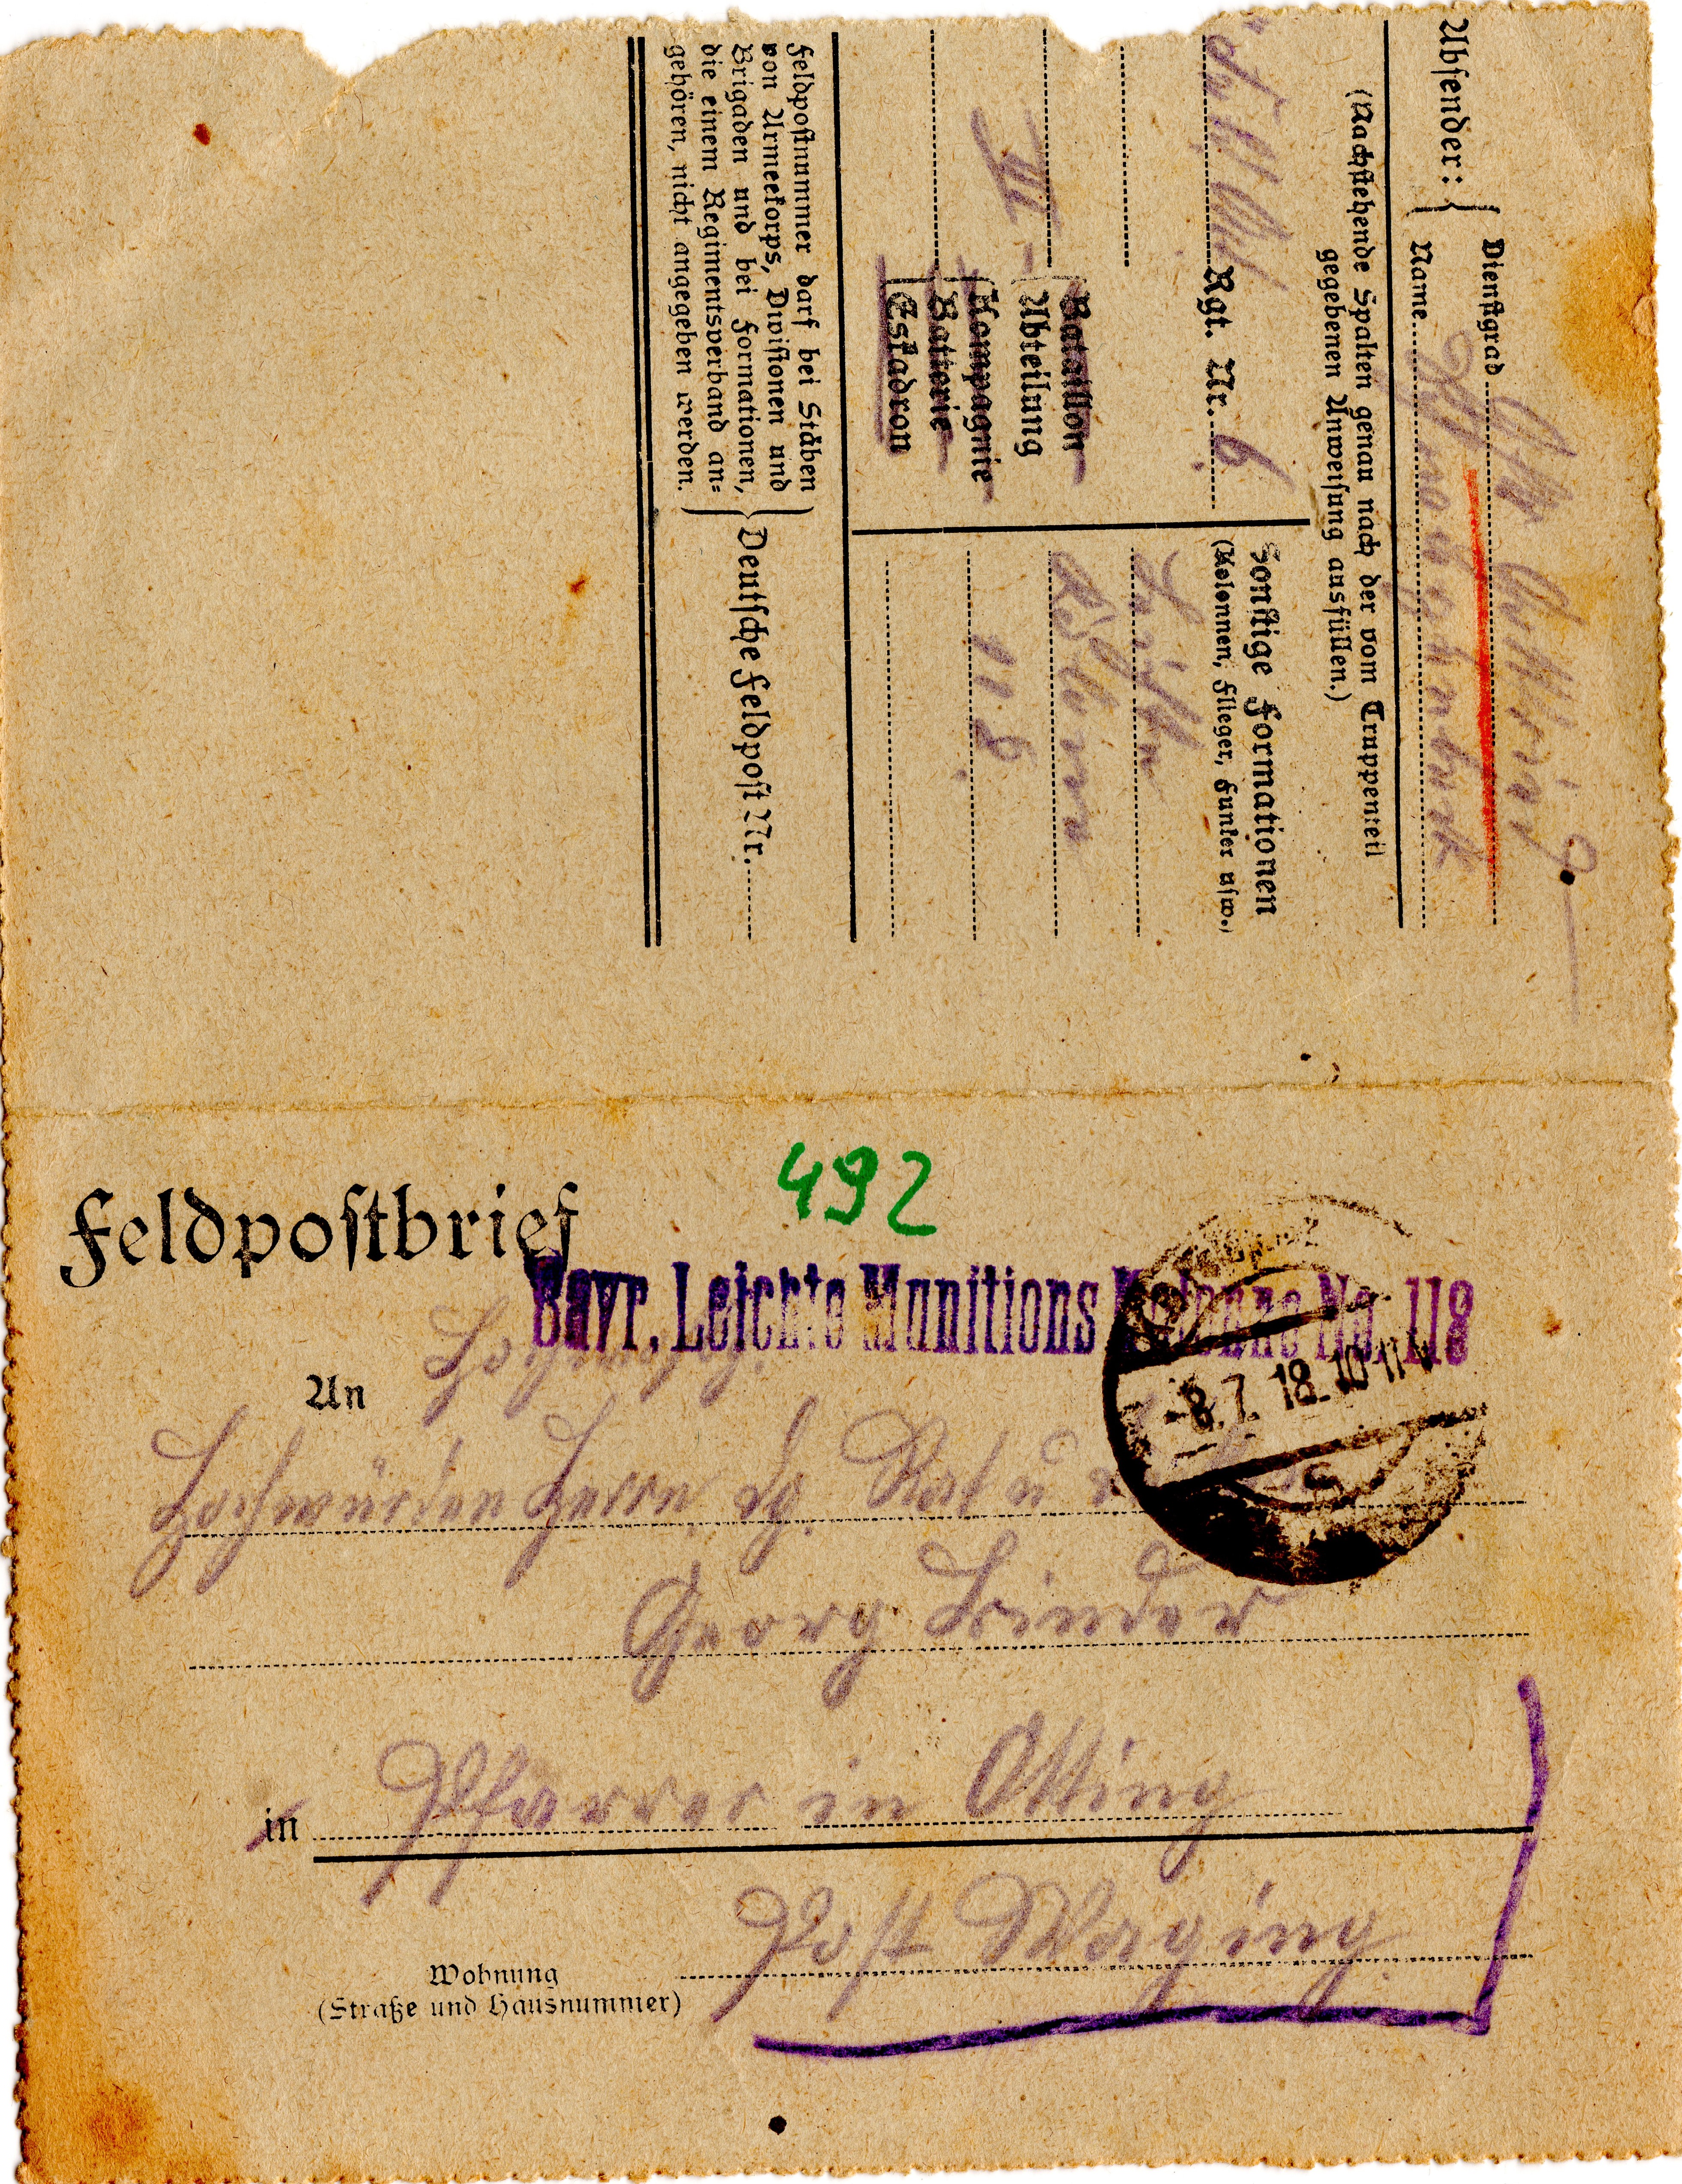 Absender:
Dienstgrad
Name
(Nachstehende Spalten genau nach der vom Truppenteil
gegebenen Anweisung ausfüllen.)
Rgt. Nr. 6.
III
Bataillon
Abteilung
Kompagnie
Batterie
Eskadron
Sonstige Formationen
(Kolonnen, Flieger, Funker usw.)
Leichte
Kolonne
118.
Feldpostnummer darf bei Stäben
von Armeekorps, Divisionen und
Brigaden und bei Formationen,
die einem Regimentsverband an-
gehören, nicht angegeben werden.
Deutsche Feldpost Nr.
492
Feldpostbrief
Bayr. Leichte Munitions Kolonne No. 118
-8.7.18.10-11V
An
Hochwürden Herrn Lg. Rat u
Georg Linder
in Pfarrer in Otting
Post Waging
Wohnung
(Straße und Hausnummer)